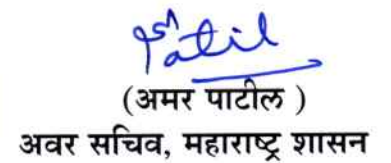 Patil
(अमर पाटील )
अवर सचिव, महाराष्ट्र शासन